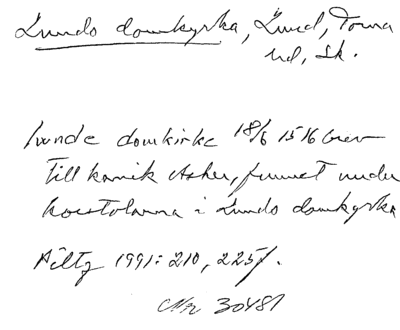 Lunds domkyrka, Lund, Torna
hd, Sk.
lunde domkirke 18/6 1516 brev
till kanik Asker, funnet under
korstolarna i Lunds domkyrka
Ailtz 1991: 210, 225f.
Nr 30481